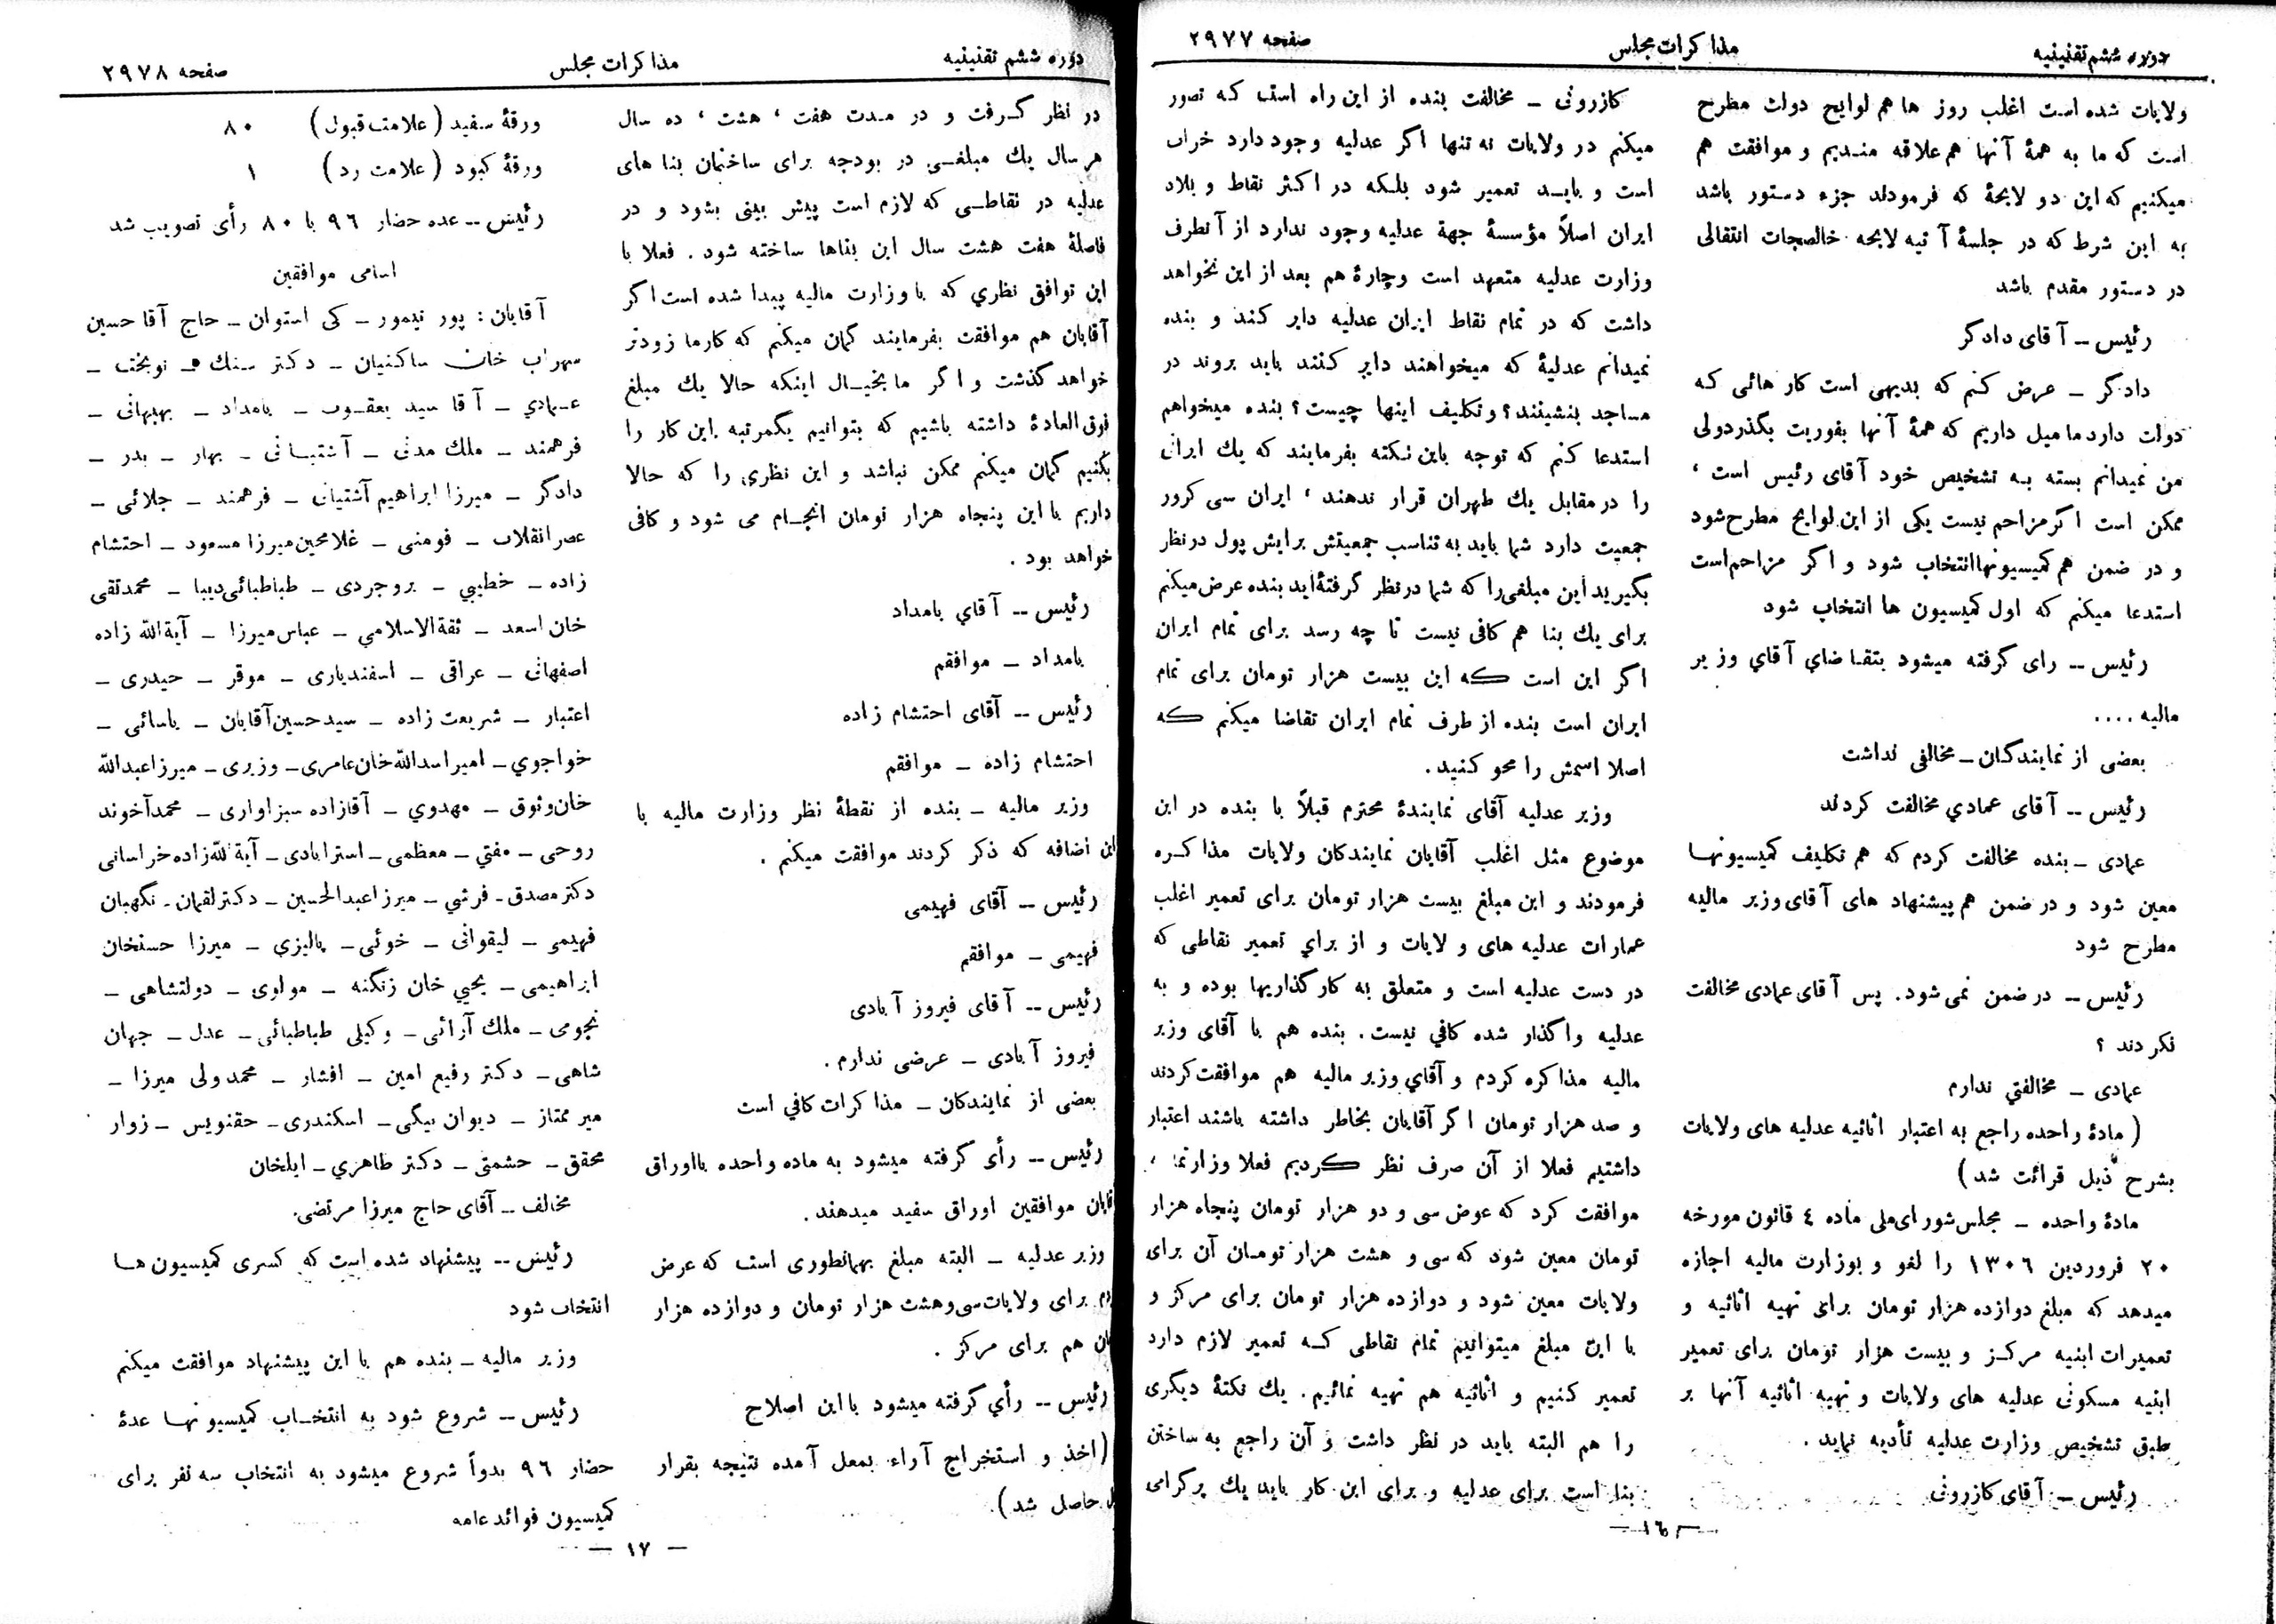 دوره ششم تقنینیه
مذاکرات مجلس
صفحه ۲۹۷۷
ولایات شده است اغلب روز ها هم لوایح دولت مطرح
است که ما به همهٔ آنها هم علاقه مندیم و موافقت هم
میکنیم که این دو لایحهٔ که فرمودند جزء دستور باشد
به این شرط که در جلسهٔ آتیه لایحه خالصجات انتقالی
در دستور مقدم باشد
رئیس ــ آقای دادگر
دادگر ــ عرض کنم که بدیهی است کار هائی که
دولت دارد ما میل داریم که همهٔ آنها بفوریت بگذرد ولی
من نمیدانم بسته به تشخیص خود آقای رئیس است ،
ممکن است اگر مزاحم نیست یکی از این لوایح مطرح شود
و در ضمن هم کمیسیونها انتخاب شود و اگر مزاحم است
استدعا میکنم که اول کمیسیون ها انتخاب شود
رئیس ــ رای گرفته میشود بتقاضای آقای وزیر
مالیه ....
بعضی از نمایندگان ــ مخالفی نداشت
رئیس ــ آقای عمادی مخالفت کردند
عمادی ــ بنده مخالفت کردم که هم تکلیف کمیسیونها
معین شود و در ضمن هم پیشنهاد های آقای وزیر مالیه
مطرح شود
رئیس ــ در ضمن نمی شود. پس آقای عمادی مخالفت
نکردند ؟
عمادی ــ مخالفتی ندارم
( مادهٔ واحده راجع به اعتبار اثاثیه عدلیه های ولایات
بشرح ذیل قرائت شد )
مادهٔ واحده ــ مجلس شورای ملی ماده ٤ قانون مورخه
۲۰ فروردین ۱۳۰٦ را لغو و بوزارت مالیه اجازه
میدهد که مبلغ دوازده هزار تومان برای تهیه اثاثیه و
تعمیرات ابنیه مرکز و بیست هزار تومان برای تعمیر
ابنیه مسکونی عدلیه های ولایات و تهیه اثاثیه آنها بر
طبق تشخیص وزارت عدلیه تأدیه نماید .
رئیس ــ آقای کازرونی
کازرونی ــ مخالفت بنده از این راه است که تصور
میکنم در ولایات نه تنها اگر عدلیه وجود دارد خراب
است و باید تعمیر شود بلکه در اکثر نقاط و بلاد
ایران اصلاً مؤسسهٔ جهة عدلیه وجود ندارد از آنطرف
وزارت عدلیه متعهد است و چارهٔ هم بعد از این نخواهد
داشت که در تمام نقاط ایران عدلیه دایر کند و بنده
نمیدانم عدلیهٔ که میخواهند دایر کنند باید بروند در
مساجد بنشینند؟ و تکلیف اینها چیست؟ بنده میخواهم
استدعا کنم که توجه باین نکته بفرمایند که یك ایرانی
را در مقابل یك طهران قرار ندهند ، ایران سی کرور
جمعیت دارد شما باید به تناسب جمعیتش برایش پول در نظر
بگیرید این مبلغی را که شما در نظر گرفتهٔ اید بنده عرض میکنم
برای یك بنا هم کافی نیست تا چه رسد برای تمام ایران
اگر این است که این بیست هزار تومان برای تمام
ایران است بنده از طرف تمام ایران تقاضا میکنم که
اصلا اسمش را محو کنید.
وزیر عدلیه آقای نمایندهٔ محترم قبلاً با بنده در این
موضوع مثل اغلب آقایان نمایندگان ولایات مذاکره
فرمودند و این مبلغ بیست هزار تومان برای تعمیر اغلب
عمارات عدلیه های ولایات و از برای تعمیر نقاطی که
در دست عدلیه است و متعلق به کارگذاریها بوده و به
عدلیه واگذار شده کافی نیست. بنده هم با آقای وزیر
مالیه مذاکره کردم و آقای وزیر مالیه هم موافقت کردند
و صد هزار تومان اگر آقایان بخاطر داشته باشند اعتبار
داشتیم فعلا از آن صرف نظر کردیم فعلا
موافقت کرد که عوض سی و دو هزار تومان پنجاه هزار
تومان معین شود که سی و هشت هزار تومان آن برای
ولایات معین شود و دوازده هزار تومان برای مرکز و
با این مبلغ میتوانیم تمام نقاطی که تعمیر لازم دارد
تعمیر کنیم و اثاثیه هم تهیه نمائیم. یك نکتهٔ دیگری
را هم البته باید در نظر داشت و آن راجع به ساختن
بنا است برای عدلیه و برای این کار باید یك پرگرامی
— ۱٦ —
دوره ششم تقنینیه
مذاکرات مجلس
صفحه ۲۹۷۸
در نظر گرفت و در مدت هفت ، هشت ، ده سال
هر سال یك مبلغی در بودجه برای ساختمان بنا های
عدلیه در نقاطی که لازم است پیش بینی بشود و در
فاصلهٔ هفت هشت سال این بناها ساخته شود . فعلا با
این توافق نظری که با وزارت مالیه پیدا شده است اگر
آقایان هم موافقت بفرمایند گمان میکنم که کارما زودتر
خواهد گذشت و اگر ما بخیال اینکه حالا یك مبلغ
فوق العادهٔ داشته باشیم که بتوانیم یکمرتبه این کار را
بکنیم گمان میکنم ممکن نباشد و این نظری را که حالا
داریم با این پنجاه هزار تومان انجام می شود و کافی
خواهد بود .
رئیس ــ آقای بامداد
بامداد ــ موافقم
رئیس ــ آقای احتشام زاده
احتشام زاده ــ موافقم
وزیر مالیه ــ بنده از نقطهٔ نظر وزارت مالیه با
این اضافه که ذکر کردند موافقت میکنم .
رئیس ــ آقای فهیمی
فهیمی ــ موافقم
رئیس ــ آقای فیروز آبادی
فیروز آبادی ــ عرضی ندارم .
بعضی از نمایندگان ــ مذاکرات کافی است
رئیس ــ رأی گرفته میشود به ماده واحده بااوراق
موافقین اوراق سفید میدهند .
وزیر عدلیه ــ البته مبلغ بهمانطوری است که عرض
برای ولایات سی و هشت هزار تومان و دوازده هزار
هم برای مرکز .
رئیس ــ رأی گرفته میشود با این اصلاح
(اخذ و استخراج آراء بعمل آمده نتیجه بقرار
حاصل شد).
ورقهٔ سفید (علامت قبول) ۸۰
ورقهٔ کبود (علامت رد) ۱
رئیس ــ عده حضار ۹٦ با ۸۰ رأی تصویب شد
اسامی موافقین
آقایان : پور تیمور ــ کی استوان ــ حاج آقا حسین
سهراب خان ساکنیان ــ دکتر سنك ــ نوبخت ــ
عمادی ــ آقا سید یعقوب ــ بامداد ــ بهبهانی ــ
فرهمند ــ ملك مدنی ــ آشتیانی ــ بهار ــ بدر ــ
دادگر ــ میرزا ابراهیم آشتیانی ــ فرهمند ــ جلائی ــ
عصر انقلاب ــ فومنی ــ غلامحین میرزا مسعود ــ احتشام
زاده ــ خطیبی ــ بروجردی ــ طباطبائی دیبا ــ محمدتقی
خان اسعد ــ ثقة الاسلامی ــ عباس میرزا ــ آیة الله زاده
اصفهانی ــ عراقی ــ اسفندیاری ــ موقر ــ حیدری ــ
اعتبار ــ شریعت زاده ــ سید حسین آقایان ــ یاسائی ــ
خواجوی ــ امیر اسدالله خان عامری ــ وزیری ــ میرزا عبدالله
خان وثوق ــ مهدوی ــ آقازاده سبزاواری ــ محمد آخوند
روحی ــ مفتی ــ معظمی ــ استرابادی ــ آیة الله زاده خراسانی
دکتر مصدق ــ فرشی ــ میرزا عبدالحسین ــ دکتر لقمان ــ نگهبان
فهیمی ــ لیقوانی ــ خوئی ــ پالیزی ــ میرزا حسنخان
ابراهیمی ــ یحیی خان زنگنه ــ مولوی ــ دولتشاهی ــ
نجومی ــ ملك آرائی ــ وکیلی طباطبائی ــ عدل ــ جهان
شاهی ــ دکتر رفیع امین ــ افشار ــ محمد ولی میرزا ــ
میر ممتاز ــ دیوان بیگی ــ اسکندری ــ حقنویس ــ زوار
محقق ــ حشمتی ــ دکتر طاهری ــ ایلخان
مخالف ــ آقای حاج میرزا مرتضی.
رئیس ــ پیشنهاد شده است که کسری کمیسیون ها
انتخاب شود
وزیر مالیه ــ بنده هم با این پیشنهاد موافقت میکنم
رئیس ــ شروع شود به انتخاب کمیسیونها عدهٔ
حضار ۹٦ بدواً شروع میشود به انتخاب سه نفر برای
کمیسیون فوائد عامه
— ۱۷ —